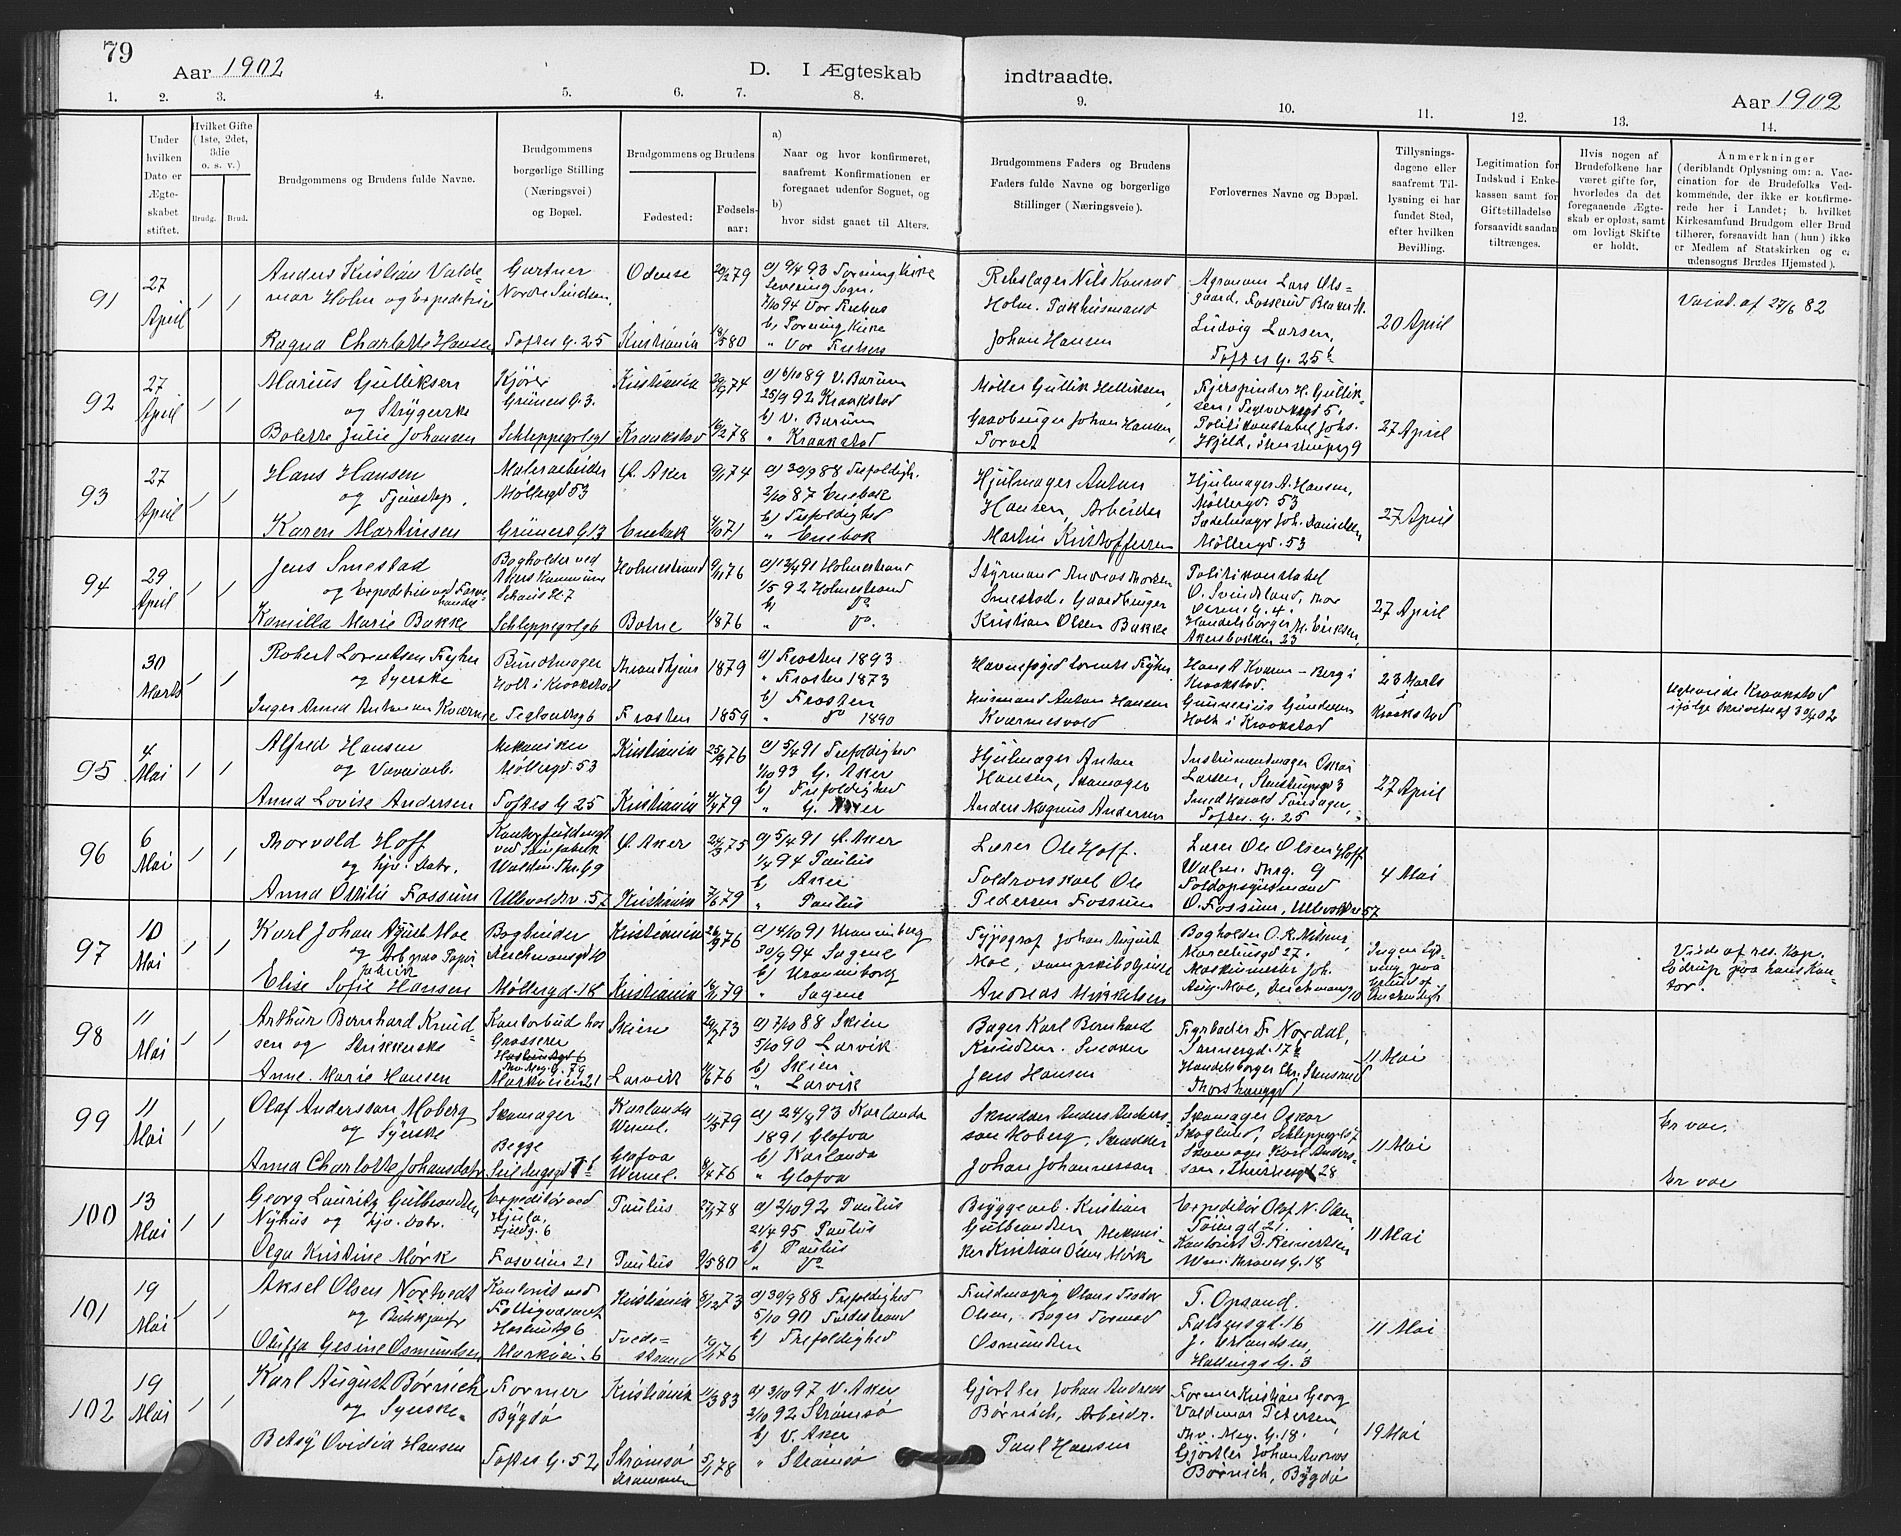 79
Aar 1902
D. I Ægteskab indtraadte.
Aar 1902
1. 2. 3. 4. 5. 6. 7. 8. 9. 10. 11. 12. 13. 14.
Under hvilken Dato er Ægteskabet stiftet.
Hvilket Gifte (1ste, 2det, 3die o. s. v.)
Brudg. Brud.
Brudgommens og Brudens fulde Navne.
Brudgommens borgerlige Stilling (Næringsvei) og Bopæl.
Brudgommens og Brudens
Fødested:
Fødselsaar:
a) Naar og hvor konfirmeret, saafremt Konfirmationen er foregaaet udenfor Sognet, og
b) hvor sidst gaaet til Alters.
Brudgommens Faders og Brudens Faders fulde Navne og borgerlige Stillinger (Næringsveie).
Forlovernes Navne og Bopæl.
Tillysningsdagene eller saafremt Tillysning ei har fundet Sted, efter hvilken Bevilling.
Legitimation for Indskud i Enkekassen samt for Giftstilladelse forsaavidt saadan tiltrænges.
Hvis nogen af Brudefolkene har været gifte for, hvorledes da det foregaaende Ægteskab er opløst, samt om lovligt Skifte er holdt.
Anmerkninger
(deriblandt Oplysning om: a. Vaccination for de Brudefolks Vedkommende, der ikke er konfirmerede her i Landet; b. hvilket Kirkesamfund Brudgom eller Brud tilhører, forsaavidt han (hun) ikke er Medlem af Statskirken og c. udensogns Brudes Hjemsted).
91
27 April
Anders Kristian Valdemar Holm og Expeditrice
Ragna Charlotte Hansen
Gartner
Toftes G. 25
Odense
Kristiania
20/2 79
a) 9/4 93 Torning Kirke
Levering Sogn.
7/10 94 Vor Frelsers
b) Torning Kirke
" Vor Frelsers
Rebslager Nils Konrad
Holm. Pakhusmand
Johan Hansen
Agronom Lars Ols-
gaard, Fosserud
Ludvig Larsen,
Toftes G. 25
20 April
Vacc. af 27/6 82
92
27 April
Marius Gulliksen
og Strygerske
Bolette Julie Johansen
Kjører
Grüners G. 3.
Schleppegrlgt
Kristiania
Kraakstad
16/2 78
a) 6/10 89 V. Bærum
25/9 92 Kraakstad
b) V. Bærum
" Kraakstad
Møller Gullik Helliksen,
Gaardbruger Johan Hansen,
Torvet
Fjerspinder H. Gullik-
sen, Teglverksgd 5.
Politikonstabel Johs.
27 April
93
27 April
Hans Hansen
og Tjenestep.
Karen Martinsen
Malerarbeider
Møllergd 53
Grüners G. 13
Ø. Aker
Enebak
9/1 74
a) 30/9 88 Trefoldigh.
2/10 87 Enebak
b) Trefoldighed
" Enebak
Hjulmager Anton
Hansen, Arbeider
Martin Kristoffersen
Hjulmager A. Hansen,
Møllergd. 53
Sadelmager Joh. Danielsen
Møllergd. 53
27 April
94
29. April
Jens Smestad
og Expeditrice ved Farvehandel
Kamilla Marie Bakke
Bogholder ved
Akers Kommune
Schleppegrlg 6
Holmestrand
Botne
9/11 76
1/8 76
a) 12/4 91 Holmestrand
1/5 92 Holmestrand
b) Do
" Do
Styrmand Andreas Thorsen
Smestad. Gaardbruger
Kristian Olsen Bakke
Politikonstabel
O. Svindland, Thor
Olsens G. 4.
Handelsborger M. Eriksen,
Akersbakken 23
27 April
30 Marts
Robert Lorentsen Fryhn
og Syerske
Inger Anna Antonsen Kværnes
Bundtmager
Holt i Kraakstad
Teglverksg 6
Throndhjem
Frosten
1879
1859
a) Frosten 1893
" Frosten 1873
b) Frosten
" Do 1890
Havnefoged Lorents Fryhn
Husmand Anton Hansen
Kværnesvold
Hans A. Kværn - Berg i
Kraakstad.
Gunnerius Gundersen
Holt i Kraakstad
23 Marts
i
Kraakstad
Ægteviede Kraakstad
ifølge skrivelse af 30/4 02
95
4 Mai
Alfred Hansen
og Væveriarb.
Anna Lovise Andersen
Mekaniker
Møllergd. 53
Toftes G 25
Kristiania
Kristiania
25/9 76
a) 5/4 91 Trefoldighed
1/10 93 G. Aker
b) Trefoldighed
" G. Aker
Hjulmager Anton
Hansen, Skomager
Anders Magnus Andersen
Instrumentmager Oskar
Larsen, Stenstrupsgd 3
Smed Harald Tonsager,
Toftes G. 25
27 April
96
6 Mai
Thorvald Hoff
og hjv. Datr.
Anna Otilie Fossum
Kontorfuldmægt
ved
Wald. Thr. G 9
Ullevoldsv. 57
Ø. Aker
Kristiania
24/3 75
7/6 79
a) 5/4 91 Ø. Aker
1/4 94 Paulus
b) Aker
" Paulus
Lærer Ole Hoff.
Toldroerskarl Ole
Pedersen Fossum
Lærer Ole Olsen Hoff
Waldm. Thrsg. 9
Toldopsynsmand
O. Fossum, Ullevoldsv 57
4 Mai
97
10 Mai
Karl Johan August Moe
og Arb. paa Papirfabrik
Elise Sofie Hansen
Bogbinder
Deichmansgd 10
Møllergd. 18
Kristiania
Kristiania
26/9 76
a) 4/10 91 Uranienborg
30/9 94 Sagene
b) Uranienborg
" Sagene
Typograf Johan August
Moe, Dampskibstjener
Andreas Mikkelsen
Bogholder O. R. Nilsen,
Marcellusgd 27.
Maskinmester Joh.
Aug. Moe, Deichmansg 10
Ingen Lysning paa
Grund af
Viede af res. Kap.
Lødrup paa hans Kontor.
98
11 Mai
Arthur Bernhard Knud-
sen og Strikkerske
Anne Marie Hansen
Kontorbud hos
Grosserer
Markveien 21
Skien
Larvik
a) 7/10 88 Skien
5/10 90 Larvik
b) Skien
" Larvik
Bager Karl Bernhard
Knudsen. Snedker
Jens Hansen
Fyrbøder F. Nordal,
Sannergd. 17
Handelsborger Chr. Stensrud
Thorshauggd 1
11 Mai
99
11 Mai
Olaf Andersson Moberg
og Syerske
Anna Charlotte Johansdatr
Skomager
Begge
Seildugsgd
Karlanda
Werml.
Glafva
Werml.
1/5 79
8/4 76
a) 24/9 93 Karlanda
1891 Glafva
b) Karlanda
" Glafva
Skrædder Anders Anders-
son Moberg, Skrædder
Johan Johannesson
Skomager Oskar
Skoglund, Schleppegrlg 7
Skomager Karl Anders-
son, Thurmesgd 28
11 Mai
Er vac.
Er vac
100
13 Mai
Georg Lauritz Gulbrandsen
Nyhus og hjv. Datr.
Olga Kristine Mørk
Expeditør ved
Hjula,
Fossveien 21
Paulus
Paulus
27/1 78
a) 2/10 92 Paulus
21/4 95 Paulus
b) Paulus
" Do
Bryggearb. Kristian
Gulbrandsen, Mekani-
ker Kristian Olsen Mørk
Expeditør Olaf N. Olsen
Tøiengd 21.
Kontorist D. Reinertsen
Wm. Thranes G. 18
11 Mai
101
19 Mai
Aksel Olsen Nortvedt
og Butikjomfr
Oluffa Gesine Osmundsen
Kontorist ved
Fattigvæsenet
Hoslesgt 6
Markvei. 6
Kristiania
Tvede-
strand
8/12 73
10/11 76
a) 30/9 88 Trefoldighed
5/10 90 Tvedestrand
b) Trefoldighed
Fuldmægtig Olaus Teodor
Olsen, Bager Tormod
Osmundsen
T. Opsand.
Falsensgd. 16
J. Erlandsen,
Hallings G. 3
11 Mai
102
19 Mai
Karl August Børnich
og Syerske
Betsy Ovidia Hansen
Former
Bygdø
Toftes G. 52
Kristiania
Strømsø
Drammen
11/3 83
5/1 78
a) 3/10 97 V. Aker
2/10 92 Strømsø
b) V. Aker
" Strømsø
Gjørtler Johan Andreas
Børnich, Arbeidr.
Paul Hansen
Former Kristian Georg
Valdemar Petersen,
Thv. Mey. G. 18.
Gjørtler Johan Andreas
Børnich, Bygdø
19 Mai